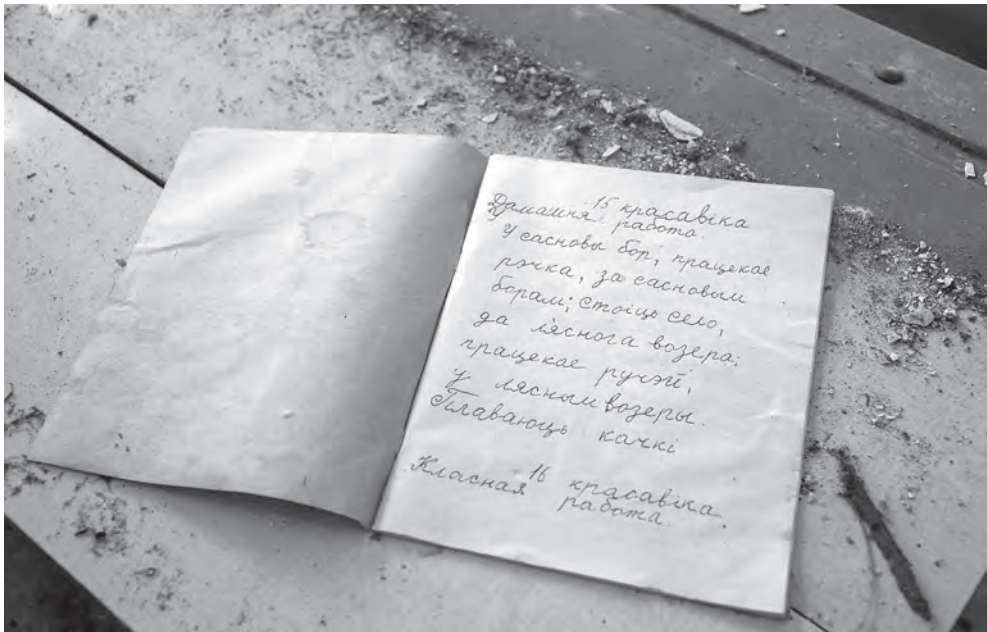 15 красавіка
Дамашня работа.
У сасновы бор, працекае
рэчка, за сасновым
борам; стоіць село,
да ляснога возера;
працекае ручэй,
У лясным возеры.
Плаваюць качкі
16 красавіка.
Класная работа.